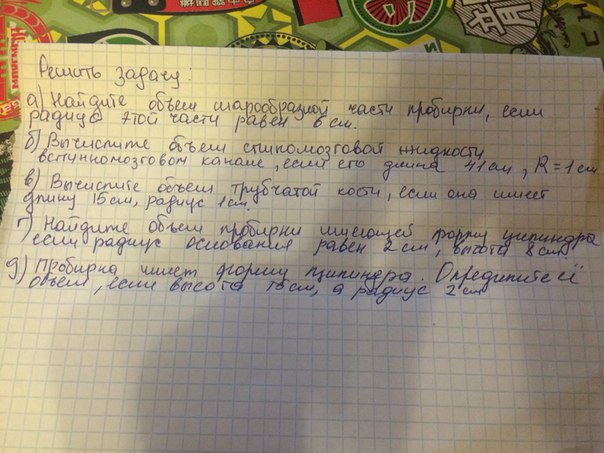 Решить задачу:
а) Найдите объем шарообразной части пробирки, если
радиус этой части равен 6 см.
б) Вычислите объем спиномозговой жидкости
вспинномозговом канале, если его длина 41 см, R = 1 см
в) Вычислите объем трубчатой кости, если она имеет
длину 15 см, радиус 1 см.
г) Найдите объем пробирки имеющей форму цилиндра
если радиус основания равен 2 см, высота 8 см
д) Пробирка имеет форму цилиндра. Определите её
объем, если высота см, а радиус 2 см